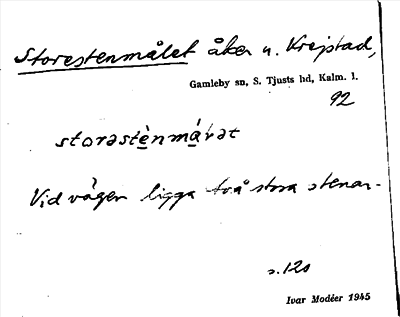 Storestenmålet åker u. Krejstad,
Gamleby sn, S. Tjusts hd, Kalm. l.
92
storəstènmáḷət
Vid vägen ligga två stora stenar.
s. 120
Ivar Modéer 1945